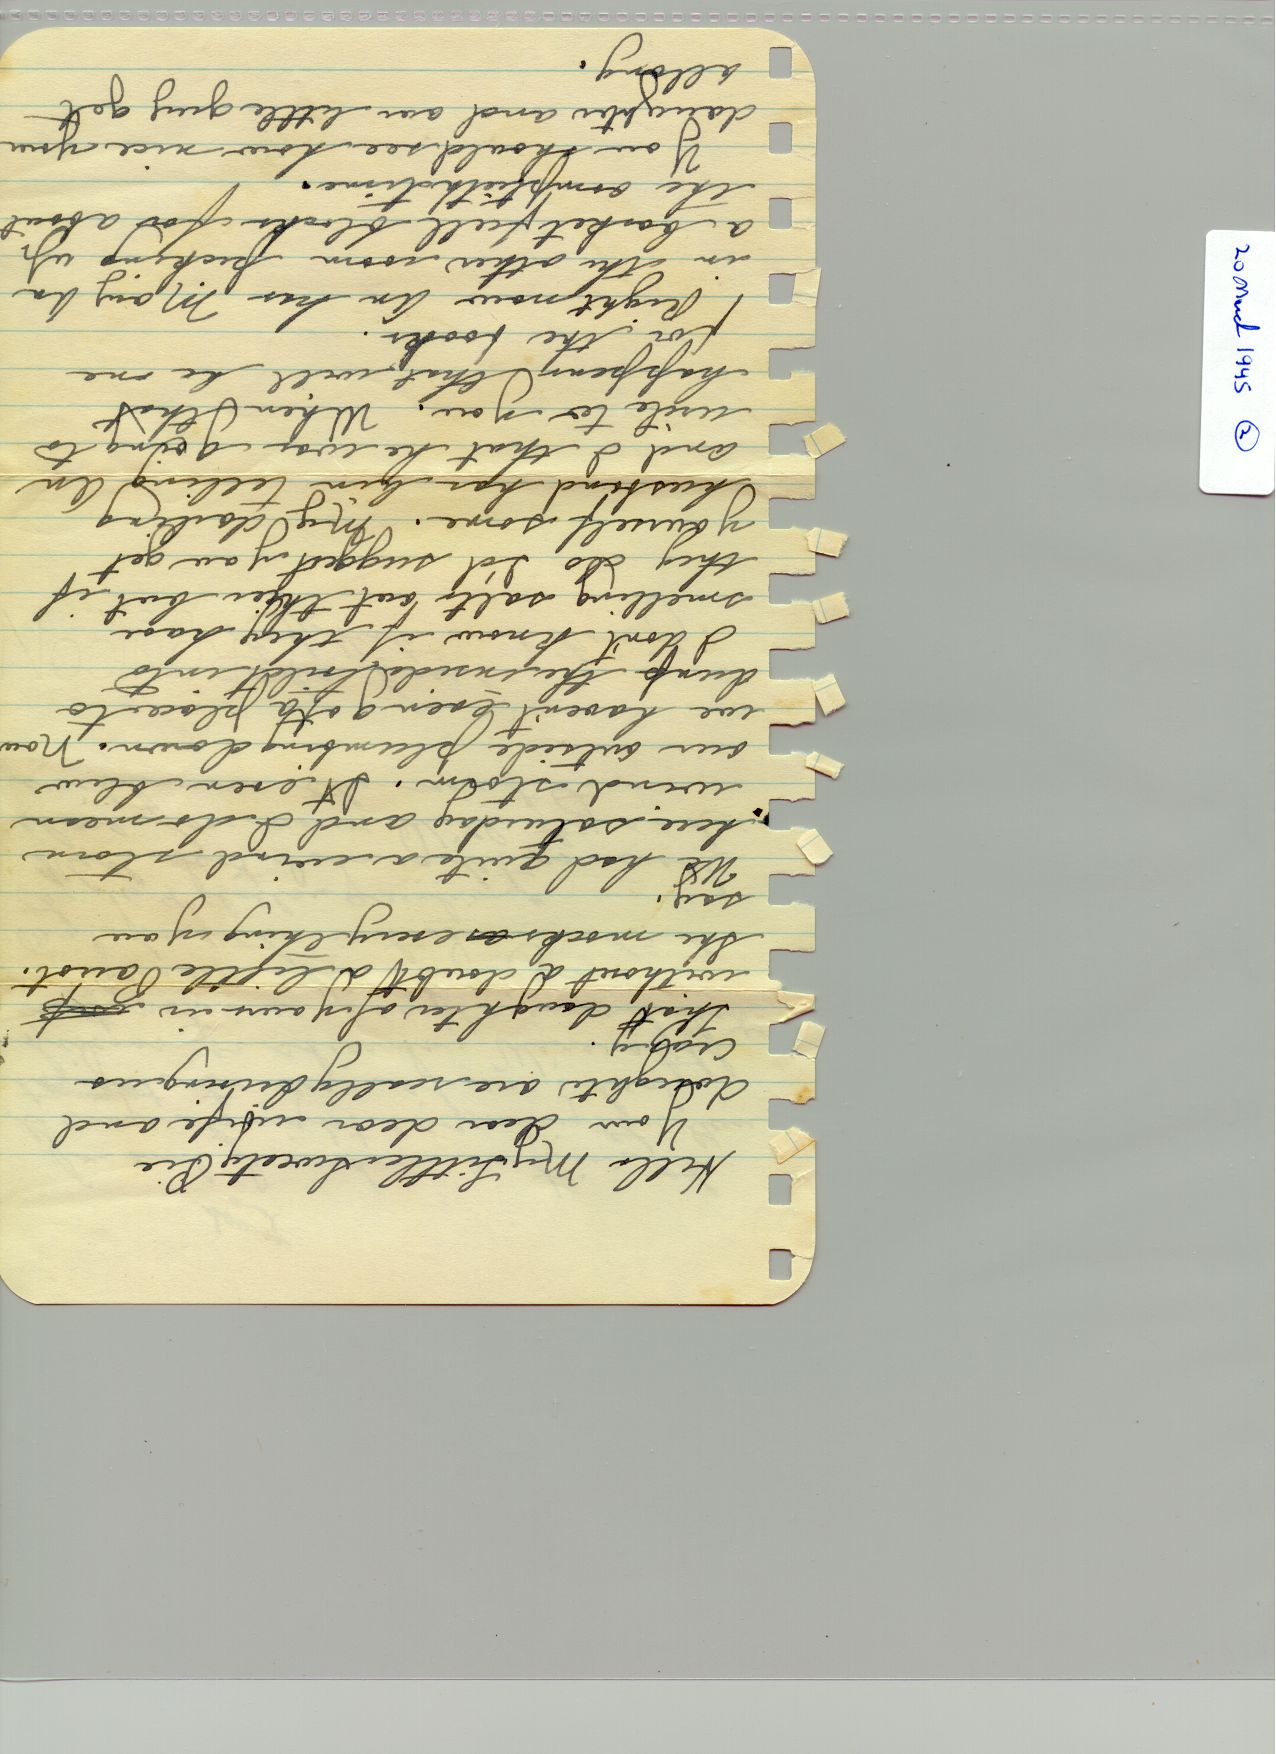 20 March 1945 (2)
Hello My Little Sweety Pie
Your dear dear wife and
daughts are really driving us
crazy.
That daughter of yours is
without a doubt a little Parrot.
She mocks everything you
say.
We had quite a wind storm
here saturday and I do mean
wind storm. It even blew
our outside plumbing down. Now
we haven't even gotta place to
dump the inside toilet into
I don't know if they have
smelling salts out their but if
they do I'd suggest you get
yourself some. My darling
husband has ben telling An
and I that he was going to
write to you. When that
happens that will be one
for the books.
Right now An has Mary An
in the other room picking up
a basket full blocks for about
the omptieth time.
You should see how nice your
daughter and our little guy get
allong.